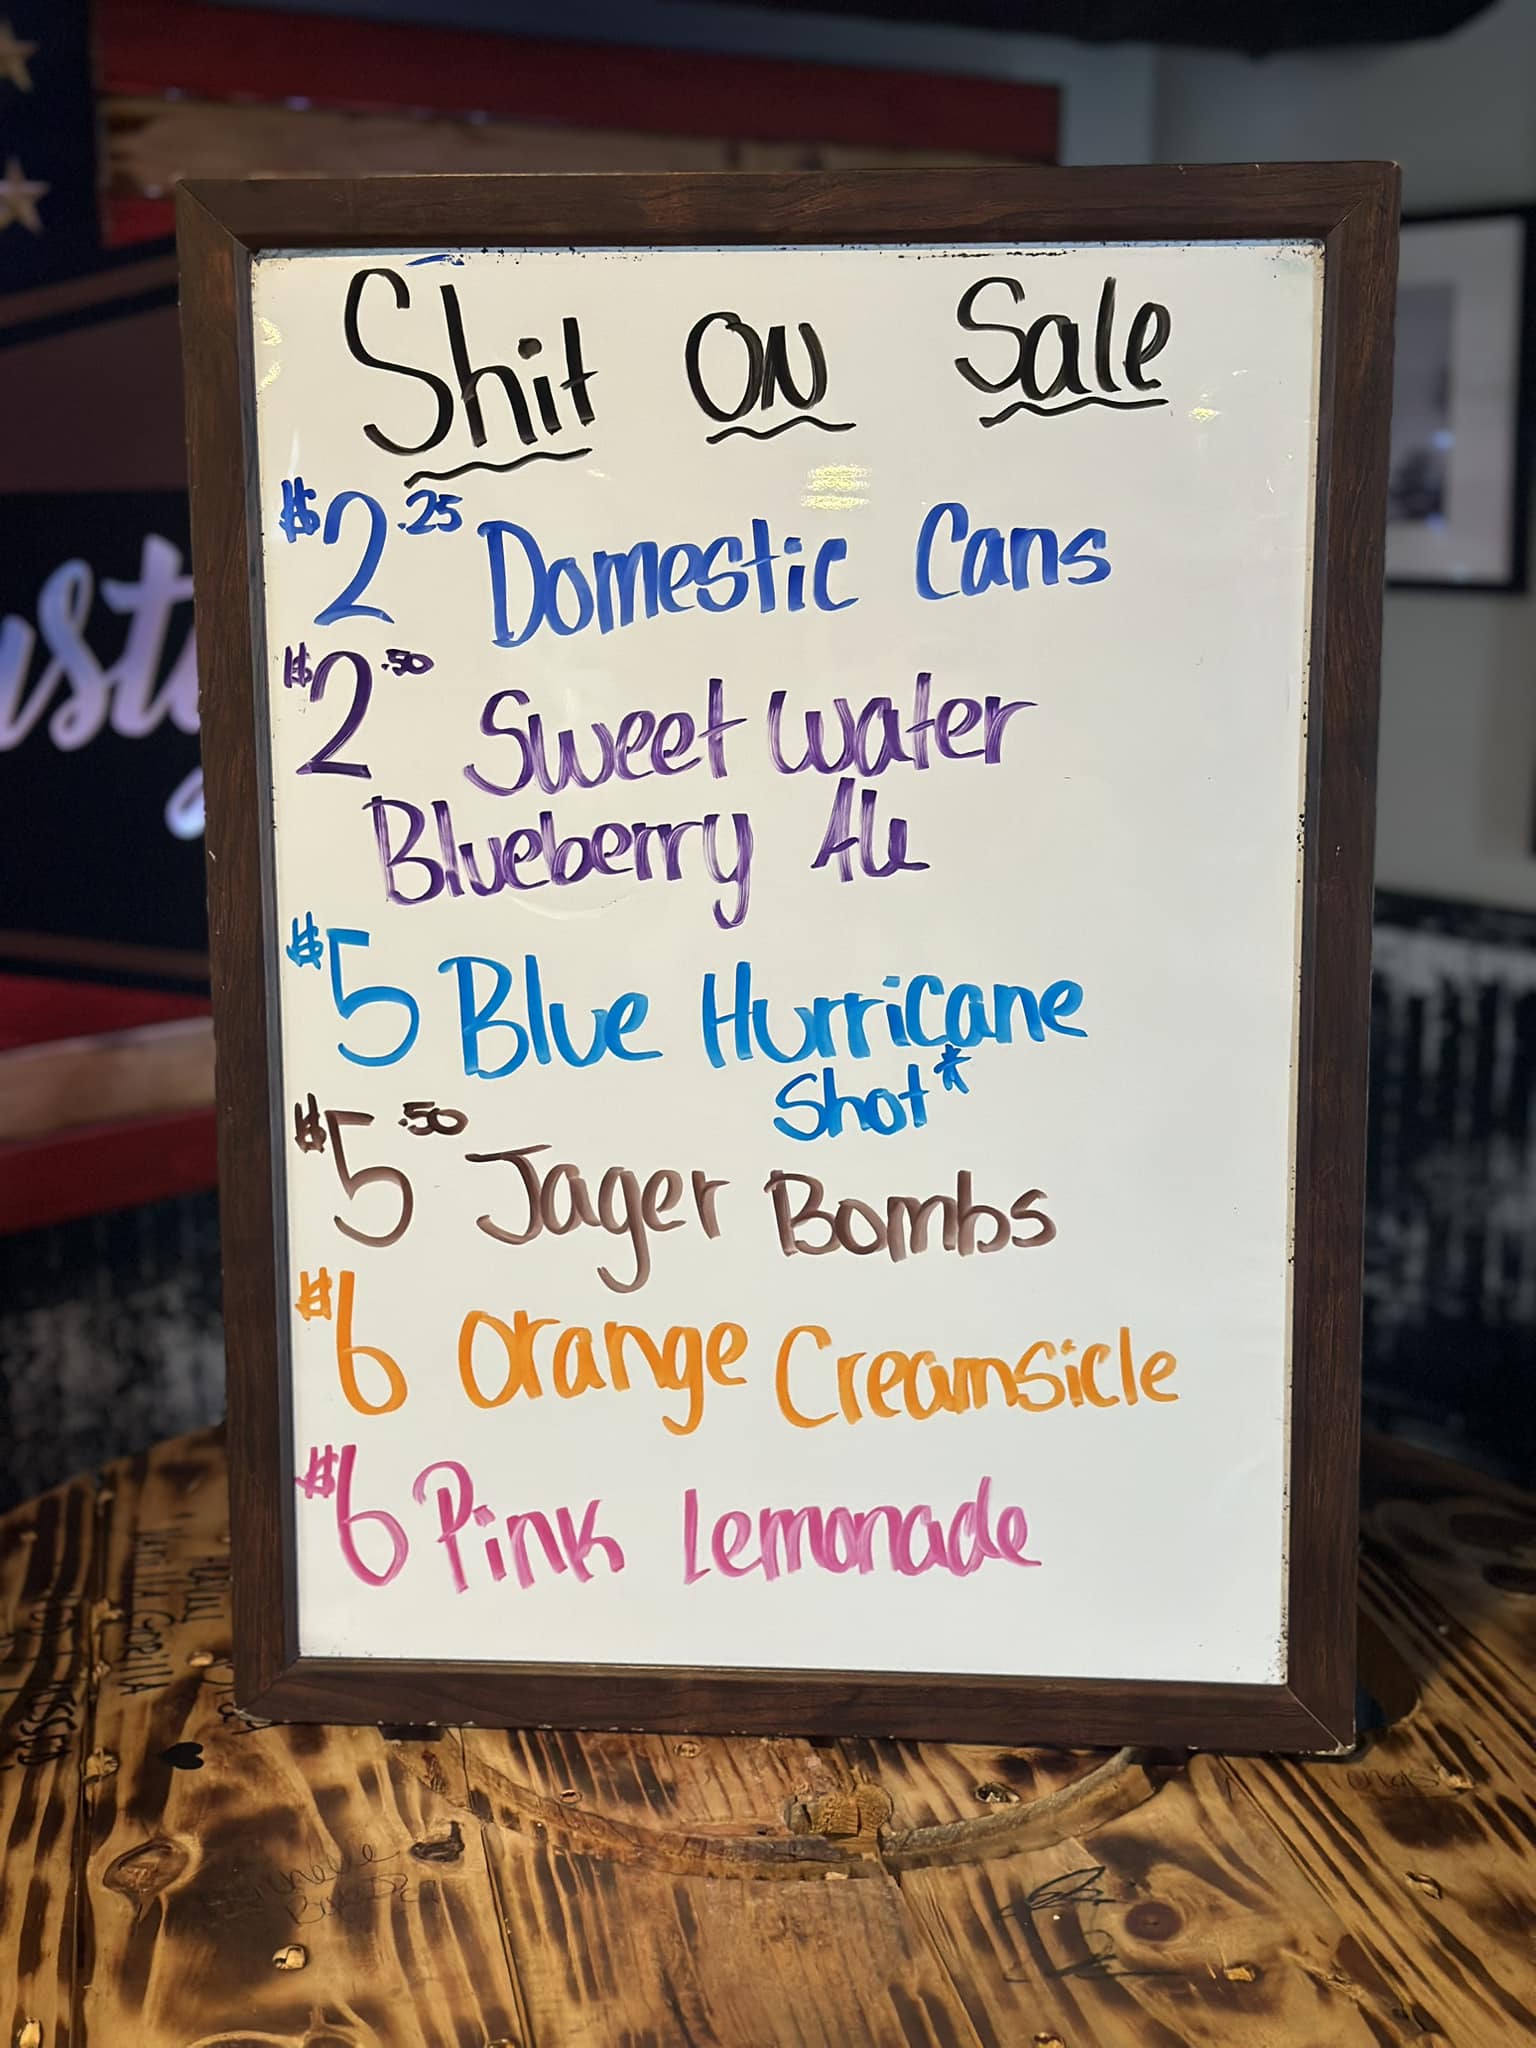 Shit ON Sale
$2.25 Domestic Cans
$2.50 Sweet Water
Blueberry Ale
$5 Blue Hurricane
Shot*
$5.50 Jager Bombs
$6 Orange Creamsicle
$6 Pink Lemonade
usty
VANILLA GORILLA